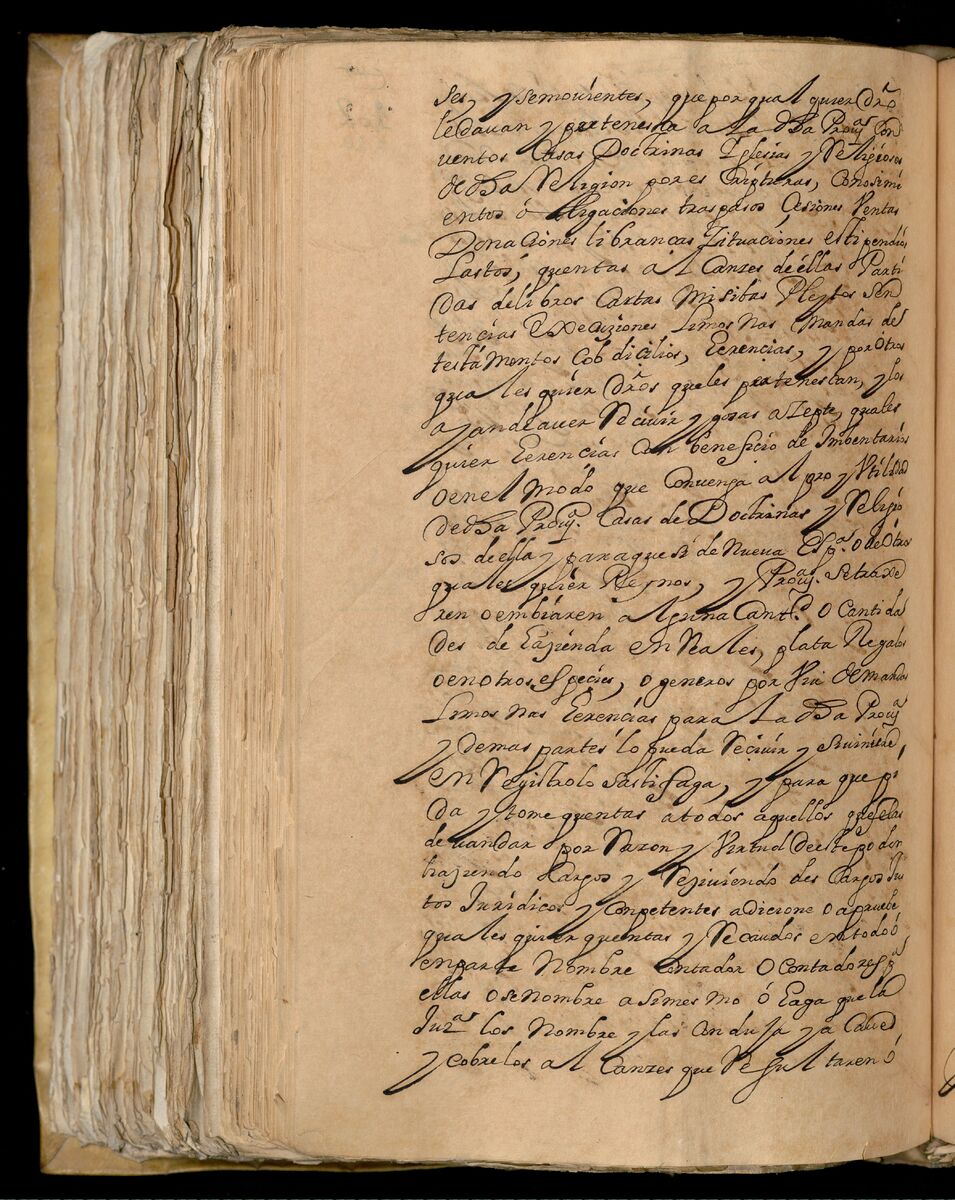 ses, y semouientes, que por qual quier dr̃o
le deuan y pertenesca a la dha Prouᵃ Con
uentos Casas Doctrinas Iglesias y Religiosos
de dha Religion por escripturas, Conosimi
entos ó obligaciones traspasos Cesiones Ventas
Donaciones librancas Situaciones estipendios
Lastos, quentas alCanzes de éllas Parti
das de libros Cartas Misibas Pleytos Sen
tencias Execuziones Limos nas Mandas de
testamentos Cobdicilios, Erencias, y por Otros
quales quier dr̃os queles pertenescan, y los
ayan de auer Reciuir y gosar aZepte, quales
quier Erencias Con beneficio de Imbentario
o en el modo que Convenga al pro y Vtilidad
de dha Prouᵃ. Casas de Doctrinas y Religio
sos de ella y para que si de Nueua Espᵃ. O de Otros
quales quier Reynos, y Prouᵃˢ. se traxe
ren o embiaren alguna Cantᵈ. o Cantida
des de Eazienda en Reales, plata Regalos
o en otros espesies, o generos por Via de mandas
Limos nas Erencias para la dha Prouᵃ
y demas partes lo pueda Reciuir y si viniere
en Registro lo sastisfaga, y para que pi
da y tome quentas a todos aquellos que se las
deuan dar por Razon y Virtud de este poder
haziendo Cargos y Resiuiendo des Cargos Jus
tos Juridicos y Conpetentes adicione o apruebe
quales quier quentas y Recaudos en todo ó
en parte Nombre Contador O Contadores pᵃ
ellas o se nombre asimesmo ó Eaga que la
Juzᵃ los Nombre y las Conclusa y a Caue
y cobre los alCanzes que Resultaren ó